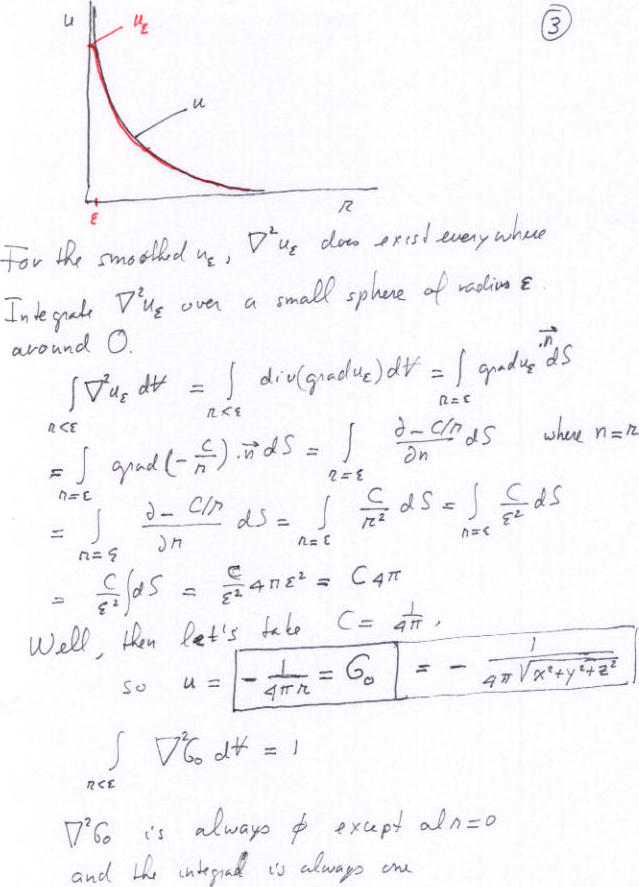 u
u_ε
③
u
r
ε
For the smoothed u_ε, ∇²u_ε does exist everywhere
Integrate ∇²u_ε over a small sphere of radius ε
around O.
∫_{r<ε} ∇²u_ε dV = ∫_{r<ε} div(grad u_ε) dV = ∫_{r=ε} grad u_ε · n⃗ dS
= ∫_{r=ε} grad(-C/r) · n⃗ dS = ∫_{r=ε} ∂-C/r / ∂n dS where n=r
= ∫_{r=ε} ∂-C/r / ∂r dS = ∫_{r=ε} C/r² dS = ∫_{r=ε} C/ε² dS
= C/ε² ∫dS = C/ε² 4πε² = C4π
Well, then let's take C = 1/4π,
so u = -1/4πr = G₀ = - 1/4π√x²+y²+z²
∫_{r<ε} ∇²G₀ dV = 1
∇²G₀ is always ϕ except at r=0
and the integral is always one